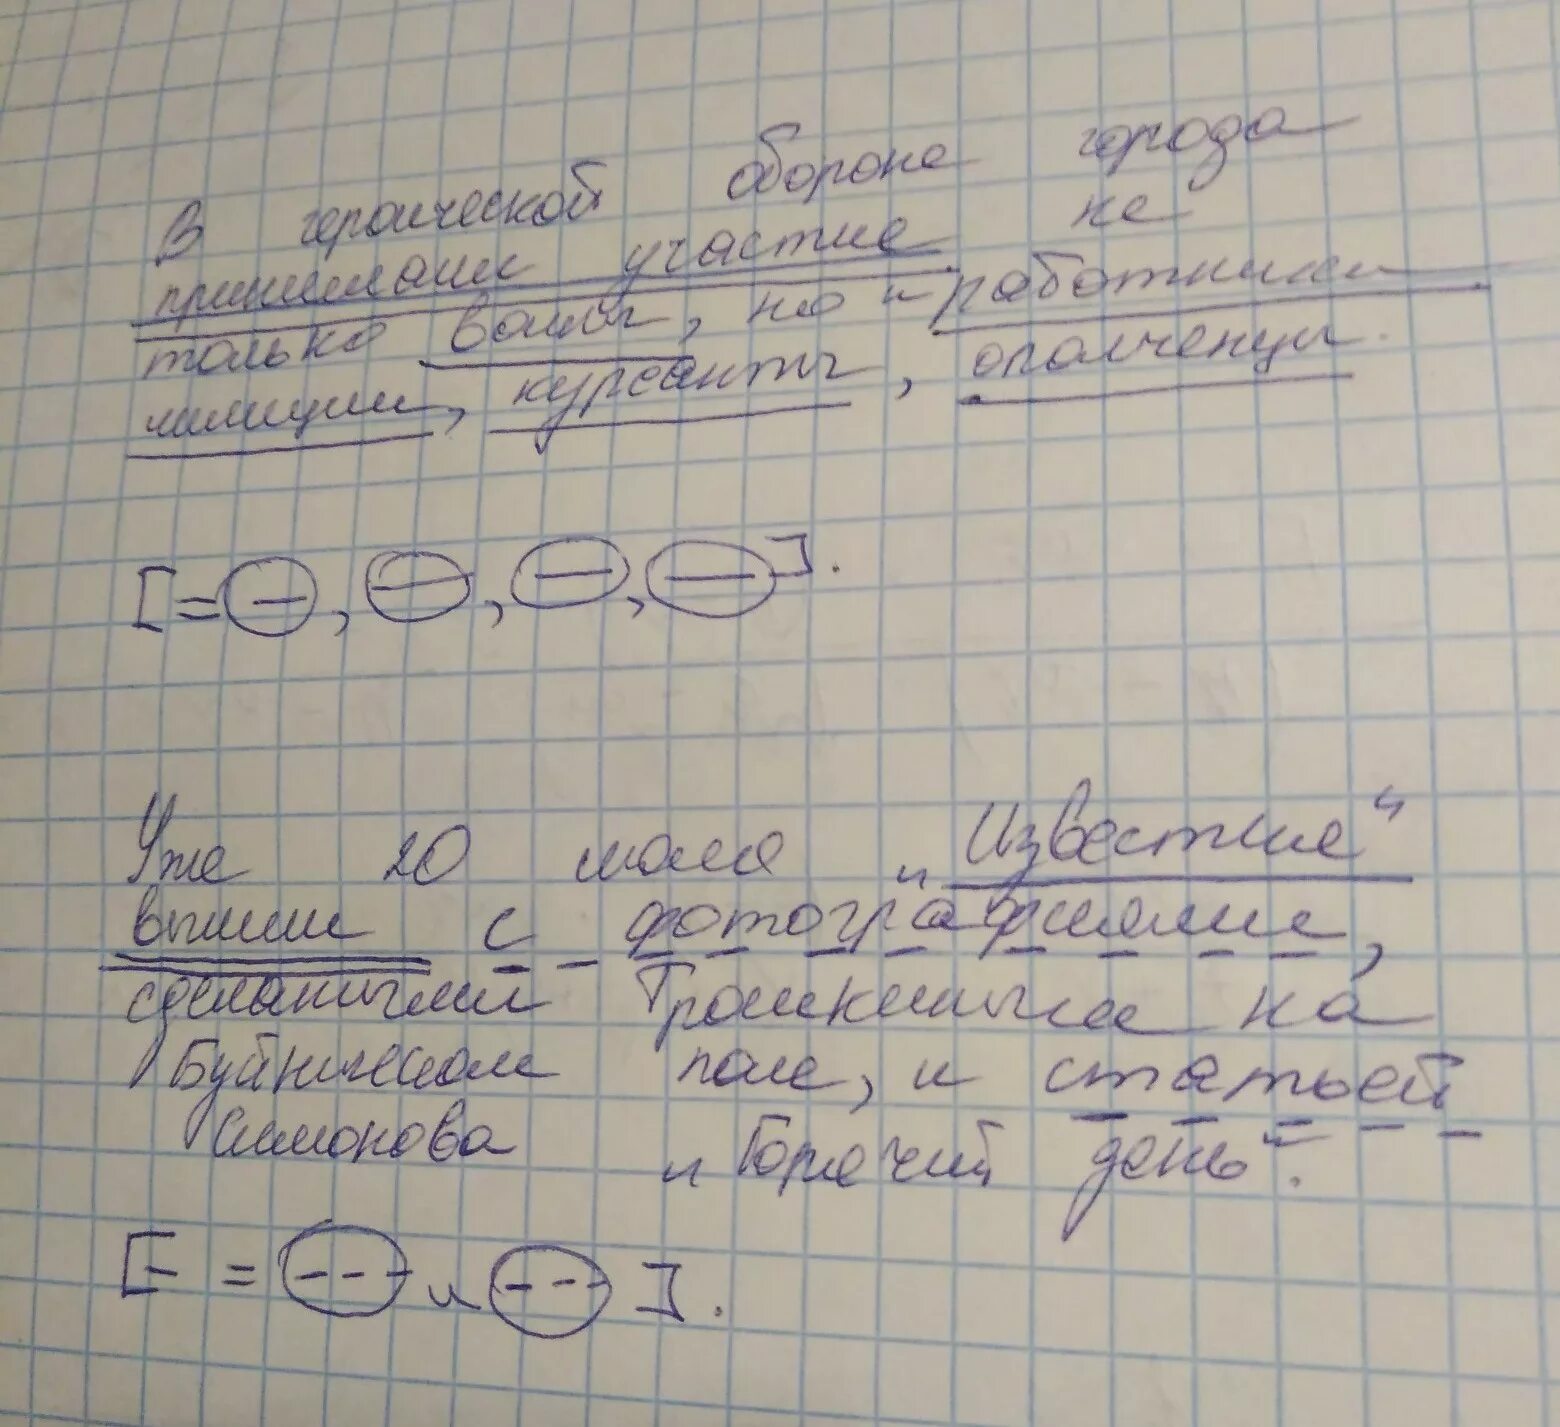 В героической обороне города
принимали участие не
только воины, но и работники
милиции, курсанты, ополченцы.
[= (—), (—), (—), (—)].
Уже 20 июля „Известия“
вышли с фотографиями,
сделанными Трошкиным на
Буйническом поле, и статьей
Симонова „Горячий день“.
[— = (---) и (---)].